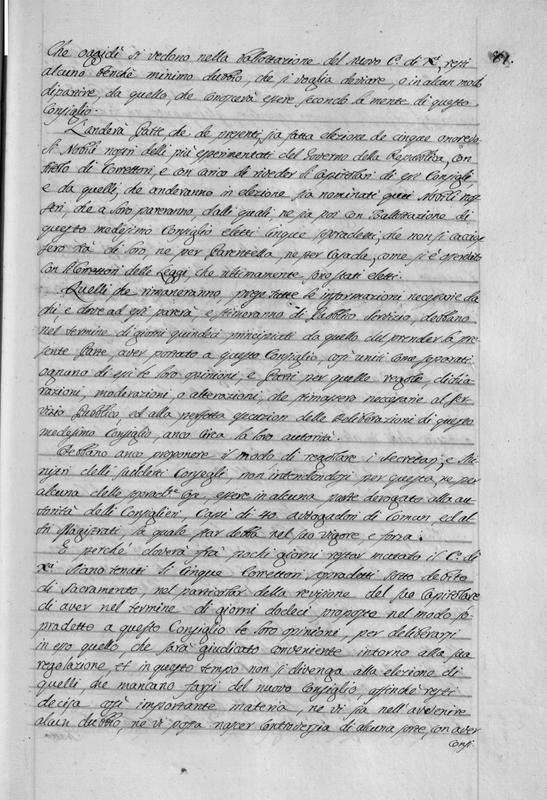 89.
Che oggidì si vedono nella ballottazione del nuovo C. di X.ci resti
alcuno benchè minimo dubbio, che si voglia deviare, o in alcun modo
dipartire, da quello, che conoscerà essere secondo la mente di questo
Consiglio.
L'anderà Parte che de presenti sia fatta elezione de cinque onorevoli
Nobili nostri delli più esperimentati del Governo della Repubblica, con
titolo di Correttori, e con carico di riveder li Capitolari di essi Consigli,
e da quelli, che anderanno in elezione sia nominati quei Nobili nos-
tri, che a loro pareranno, dalli quali ne sia poi con Ballottazione di
questo medesimo Consiglio eletti cinque sopradetti, che non si caccia-
sero frà di loro, ne per Parentella, ne per Casada, come si è osservato
con li Correttori delle Leggi, che ultimamente sono stati eletti.
Quelli, che rimaneranno, prese tutte le informazioni necessarie da
chi e dove ad essi parerà, e stimeranno di Pubblico Servizio, debbano
nel termine di giorni quindeci principiati da quello del prender la pre-
sente Parte, aver portato a questo Consiglio, così uniti come separati
ognuno di essi le loro opinioni, e Parti per quelle regole, dichia-
razioni, moderazioni, o alterazioni, che stimassero necessarie al ser-
vizio Pubblico, ed alla perfetta esecuzion delle Deliberazioni di questo
medesimo Consiglio, anco circa la loro autorità.
Debbano anco proponere il modo di regolare i Secretarj, e Mi-
nistri delli suddetti Consegli, non intendendosi per questa, ne per
alcuna delle sopradte cose, essere in alcuna parte derogato alla au-
torità delli Consiglieri, Capi di 40. Avvogadori di Comun, ed al-
tri Magistrati, la quale star debba nel suo vigore, e forza.
E perchè doverà frà pochi giorni restar mutado il C. di
X.ci siano tenuti li cinque Correttori sopradetti sotto debito
di Sacramento, nel particolar della revisione del suo Capitolare
di aver nel termine di giorni dodeci proposto nel modo so-
pradetto a questo Consiglio le loro opinione, per deliberarsi
in esso quello che sarà giudicato conveniente intorno alla sua
regolazione et in questo tempo non si divenga alla elezione di
quelli, che mancano farsi del nuovo Consiglio, affinchè resti
decisa così importante materia, ne vi sia nell'avvenire
alcun dubbio, ne vi possa nascer controversia di alcuna sorte, con aver
Consi